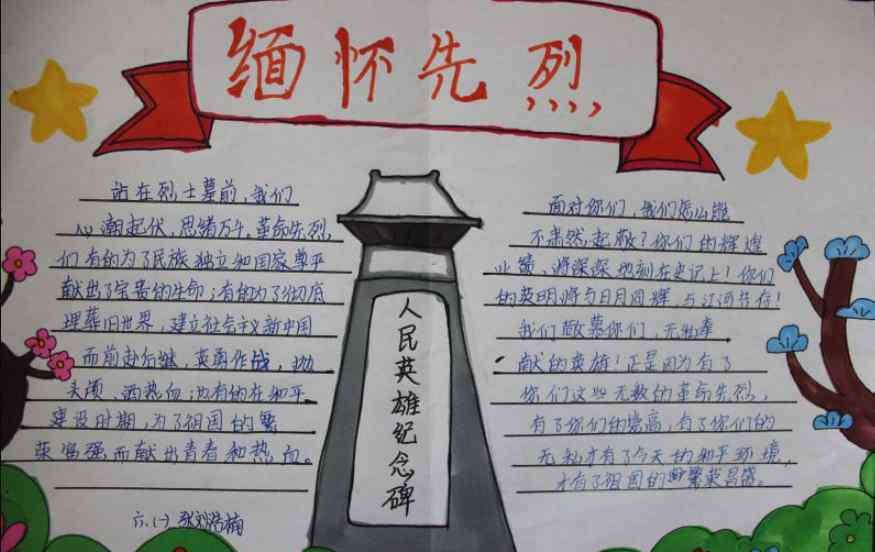 缅怀先烈
站在烈士墓前,我们
心潮起伏,思绪万千。革命先烈,
们有的为了民族独立和国家尊平
献出了宝贵的生命;有的为了彻底
埋葬旧世界,建立社会主义新中国
而前赴后继,英勇作战,抛
头颅、洒热血;也有的在和平
建设时期,为了祖国的繁
荣富强而献出青春和热血。
六.(一)
人民英雄纪念碑
面对你们,我们怎么能
不肃然起敬?你们的辉煌
业绩、将深深地刻在史记上!你们
的英明将与日月同辉,与江河共存!
我们敬慕你们,无私奉
献的英雄!正是因为有了
你们这些无数的革命先烈,
有了你们的崇高,有了你们的
无私才有了今天的和平环境,
才有了祖国的繁荣昌盛。